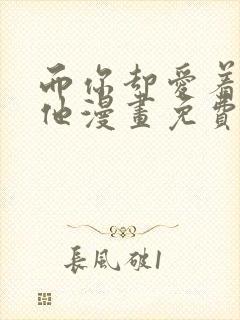 而你却愛着
他漫畫免費
長風破1